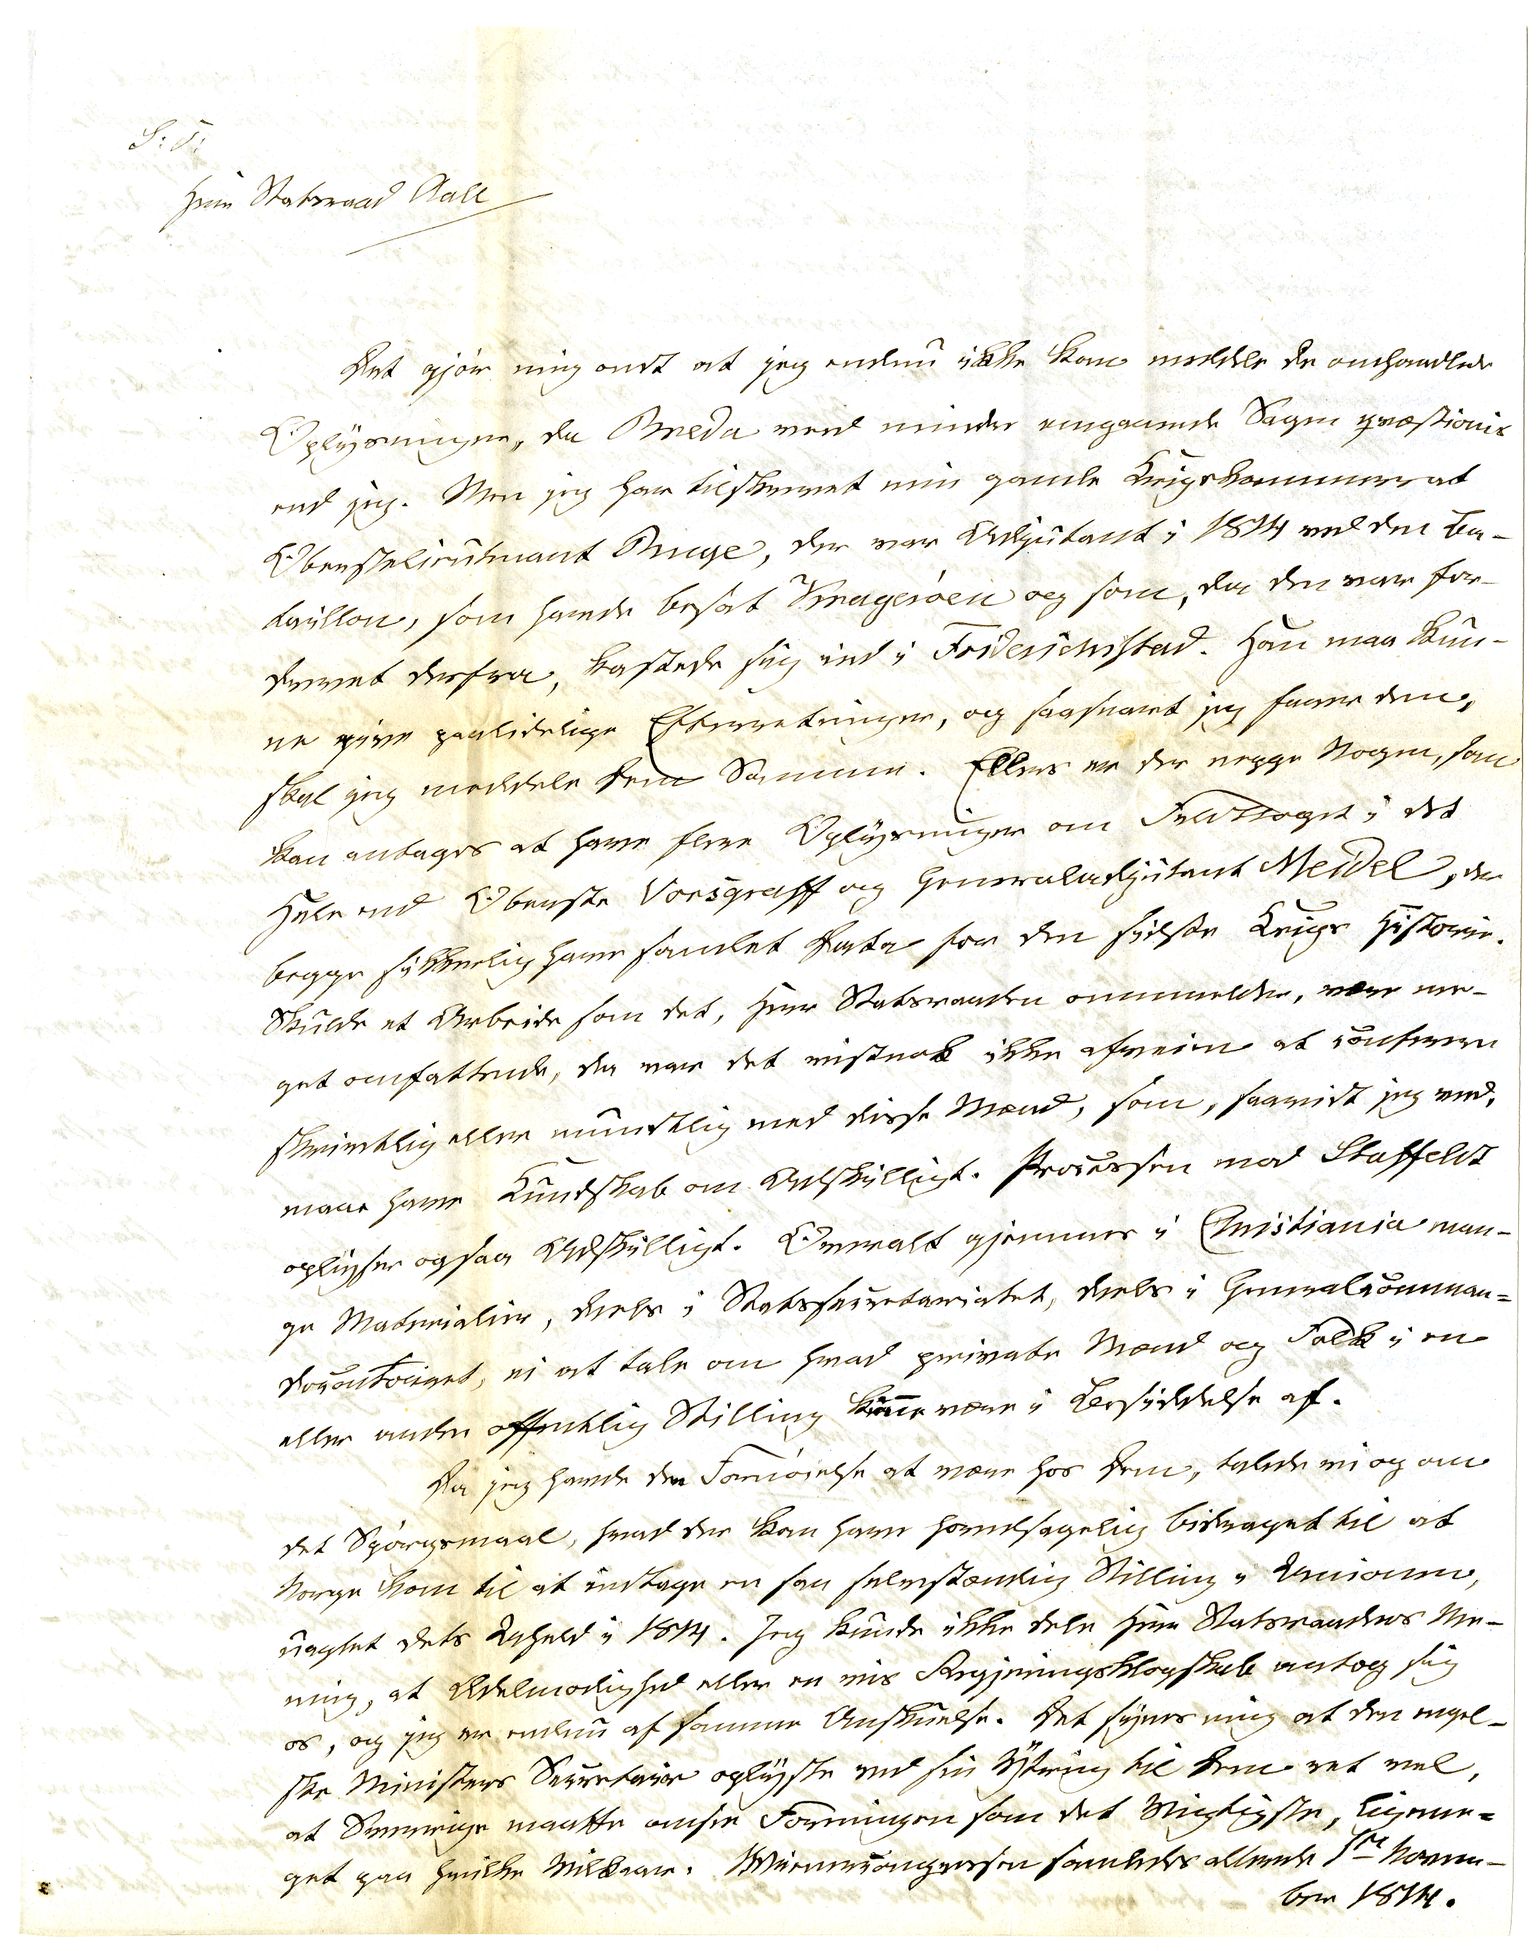 S: T:
Herr Statsraad Aall
Det gjör mig ondt at jeg endnu ikke kan meddele de omhandlede
Oplysninger, da Breda veed mindre angaaende Sagen qvæstionis
end jeg. Men jeg har tilskrevet min gamle Krigskammerat
Oberstelieutnant Bruge, der var Adjutant i 1814 ved den Ba-
taillon, som havde besat Kragerøen og som, da den var for-
drevet derfra, kastede sig ind i Friderichstad. Han maa kun-
ne give paalidelige Efterretninger, og saasnart jeg faaer dem,
skal jeg meddele Dem Samme. Ellers er der neppe Nogen, som
kan antages at have flere Oplysninger om Felttoget i det
Hele end Oberste Vorsgraff og Generaladjutant Meidel, der
begge sikkerlig have samlet Data for den sidste Krigs Historie.
Skulde et Arbeide som det, Herr Statsraaden ommelder, være me-
get omfattende, da var det vistnok ikke afveien at conferere
skrivtlig eller mundtlig med disse Mænd, som, saavidt jeg veed,
maae have Kundskab om Adskilligt. Processen mod Staffeldt
oplyser ogsaa Adskilligt. Overalt gjemmes i Christiania man-
ge Materialier, deels i Statssecretariatet, deels i Generalcomman-
docontoiret, ei at tale om hvad private Mænd og Folk i en
eller anden offentlig Stilling kunne være i Besiddelse af.
Da jeg havde den Fornöielse at være hos Dem, talede vi og om
det Spörgsmaal, hvad der kan have hovedsagelig bidraget til at
Norge kom til at indtage en saa selvstændig Stilling i Unionen,
uagtet dets Uheld i 1814. Jeg kunde ikke dele Herr Statsraadens Me-
ning, at Ædelmodighed eller en vis Regjeringsklogskab antog sig
os, og jeg er endnu af samme Anskuelse. Det synes mig at den engel-
ske Ministers Secretair oplyste ved sin Yttring til Dem ret vel,
at Sverrige maatte ansee Foreningen som det Vigtigste, ligeme-
get paa hvilke Vilkaar. Wienercongressen samledes allerede 1ste Novem-
ber 1814.